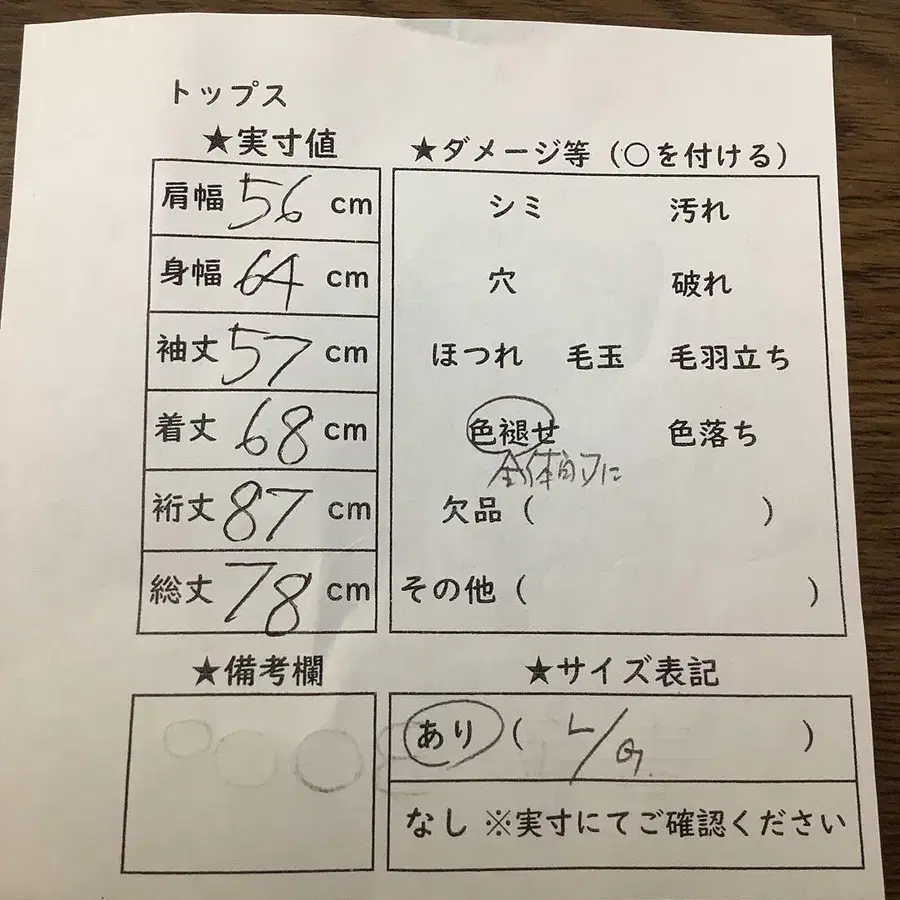 トップス
★実寸値
肩幅 56 cm
身幅 64 cm
袖丈 57 cm
着丈 68 cm
裄丈 87 cm
総丈 78 cm
★ダメージ等（○を付ける）
シミ 汚れ
穴 破れ
ほつれ 毛玉 毛羽立ち
色褪せ 色落ち
全体的に
欠品（ ）
その他（ ）
★備考欄
★サイズ表記
あり（ L/G ）
なし ※実寸にてご確認ください